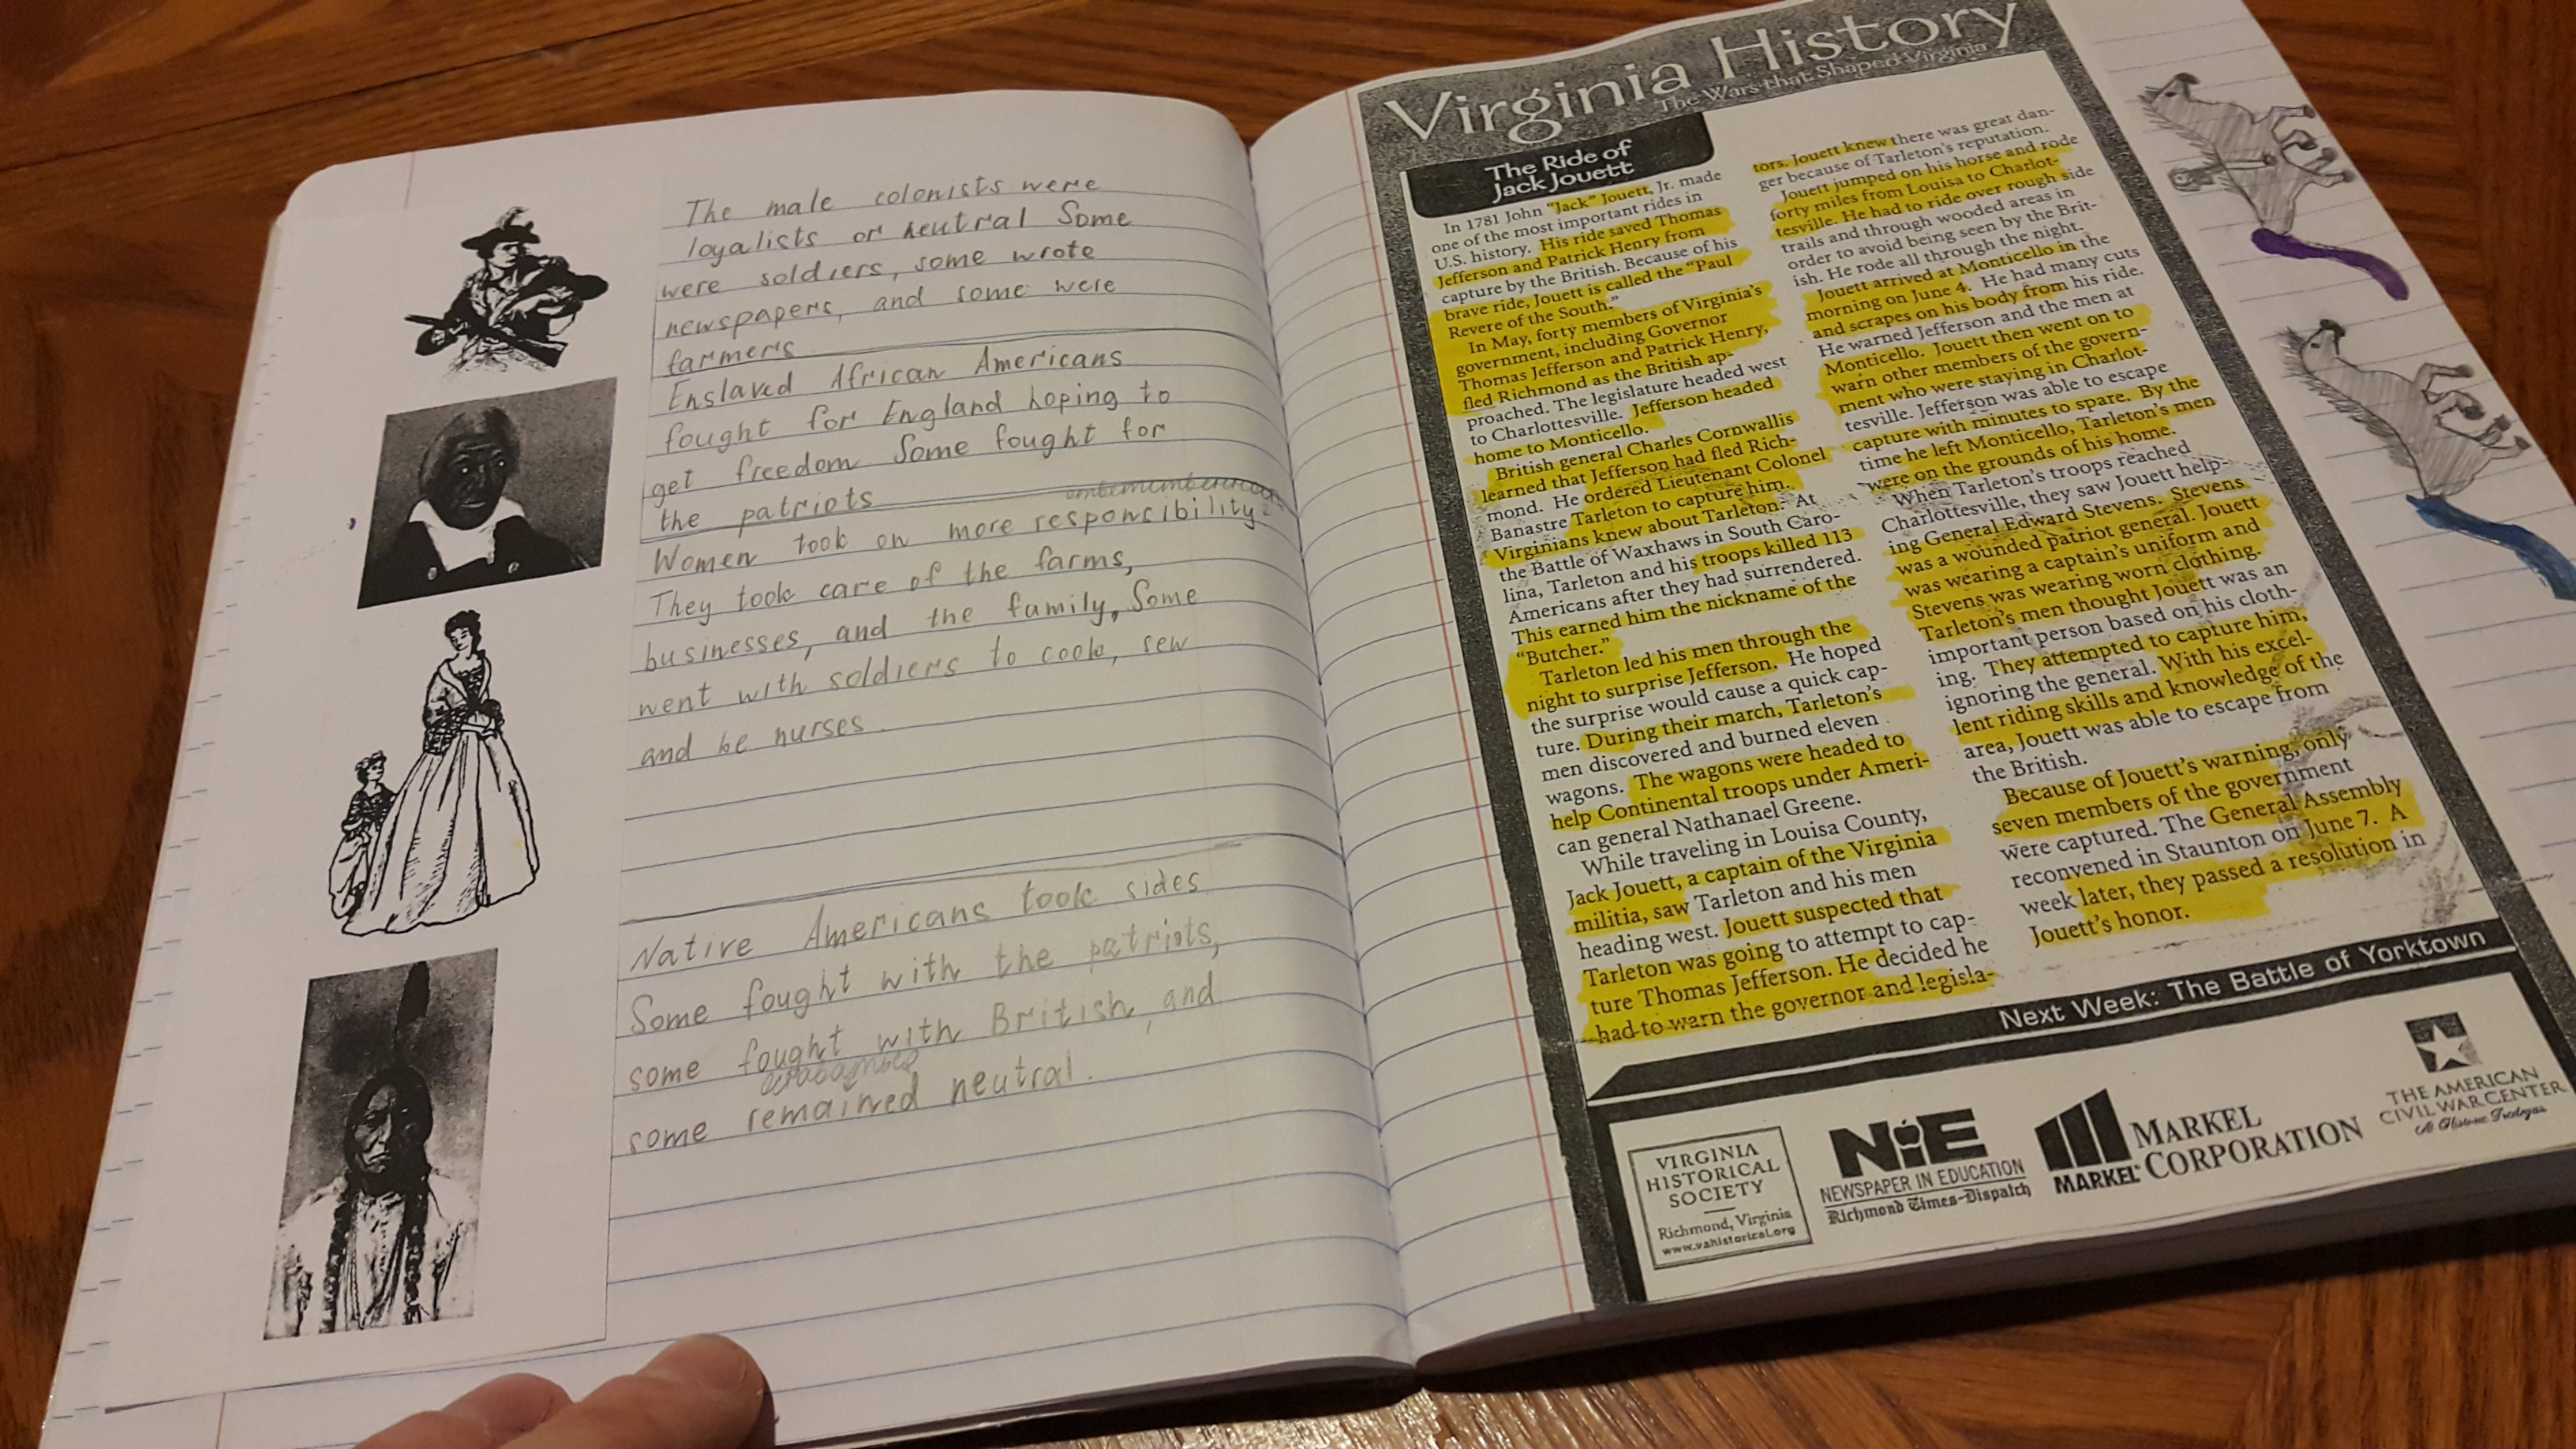 The male colonists were
loyalists or neutral Some
were soldiers, some wrote
newspapers, and some were
farmers
Enslaved African Americans
fought for England hoping to
get freedom Some fought for
the patriots
Women took on more responsibility.
They took care of the farms,
businesses, and the family, Some
went with soldiers to cook, sew
and be nurses.
Native Americans took sides
Some fought with the patriots,
some fought with British, and
some remained neutral.
Virginia History
The Wars that Shaped Virginia
The Ride of
Jack Jouett
In 1781 John "Jack" Jouett, Jr. made
one of the most important rides in
U.S. history. His ride saved Thomas
Jefferson and Patrick Henry from
capture by the British. Because of his
brave ride, Jouett is called the "Paul
Revere of the South."
In May, forty members of Virginia's
government, including Governor
Thomas Jefferson and Patrick Henry,
fled Richmond as the British ap-
proached. The legislature headed west
to Charlottesville. Jefferson headed
home to Monticello.
British general Charles Cornwallis
learned that Jefferson had fled Rich-
mond. He ordered Lieutenant Colonel
Banastre Tarleton to capture him.
Virginians knew about Tarleton. At
the Battle of Waxhaws in South Caro-
lina, Tarleton and his troops killed 113
Americans after they had surrendered.
This earned him the nickname of the
"Butcher."
Tarleton led his men through the
night to surprise Jefferson. He hoped
the surprise would cause a quick cap-
ture. During their march, Tarleton's
men discovered and burned eleven
wagons. The wagons were headed to
help Continental troops under Ameri-
can general Nathanael Greene.
While traveling in Louisa County,
Jack Jouett, a captain of the Virginia
militia, saw Tarleton and his men
heading west. Jouett suspected that
Tarleton was going to attempt to cap-
ture Thomas Jefferson. He decided he
had to warn the governor and legisla-
tors. Jouett knew there was great dan-
ger because of Tarleton's reputation.
Jouett jumped on his horse and rode
forty miles from Louisa to Charlot-
tesville. He had to ride over rough side
trails and through wooded areas in
order to avoid being seen by the Brit-
ish. He rode all through the night.
Jouett arrived at Monticello in the
morning on June 4. He had many cuts
and scrapes on his body from his ride.
He warned Jefferson and the men at
Monticello. Jouett then went on to
warn other members of the govern-
ment who were staying in Charlot-
tesville. Jefferson was able to escape
capture with minutes to spare. By the
time he left Monticello, Tarleton's men
were on the grounds of his home.
When Tarleton's troops reached
Charlottesville, they saw Jouett help-
ing General Edward Stevens. Stevens
was a wounded patriot general. Jouett
was wearing a captain's uniform and
Stevens was wearing worn clothing.
Tarleton's men thought Jouett was an
important person based on his cloth-
ing. They attempted to capture him,
ignoring the general. With his excel-
lent riding skills and knowledge of the
area, Jouett was able to escape from
the British.
Because of Jouett's warning, only
seven members of the government
were captured. The General Assembly
reconvened in Staunton on June 7. A
week later, they passed a resolution in
Jouett's honor.
Next Week: The Battle of Yorktown
VIRGINIA
HISTORICAL
SOCIETY
Richmond, Virginia
www.vahistorical.org
NiE
NEWSPAPER IN EDUCATION
Richmond Times-Dispatch
MARKEL
MARKEL
CORPORATION
THE AMERICAN
CIVIL WAR CENTER
At Historic Tredegar